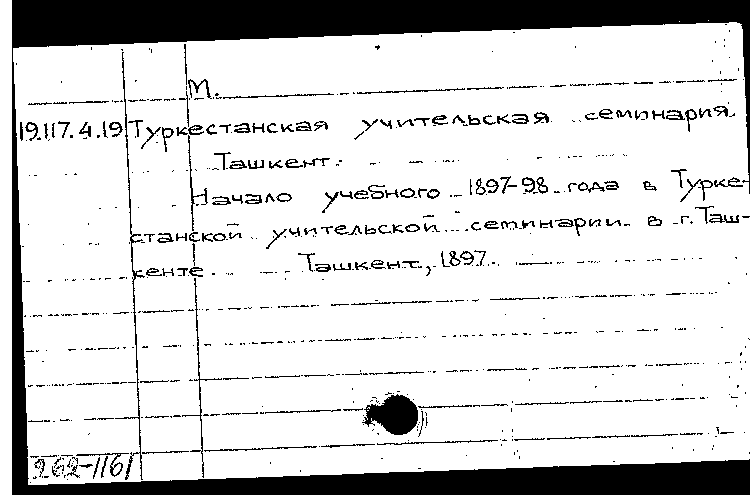 М.
19.117.4.19 Туркестанская учительская семинария.
Ташкент.
Начало учебного 1897-98 года в Турке-
станской учительской семинарии в г. Таш-
кенте. Ташкент, 1897.
262-1161